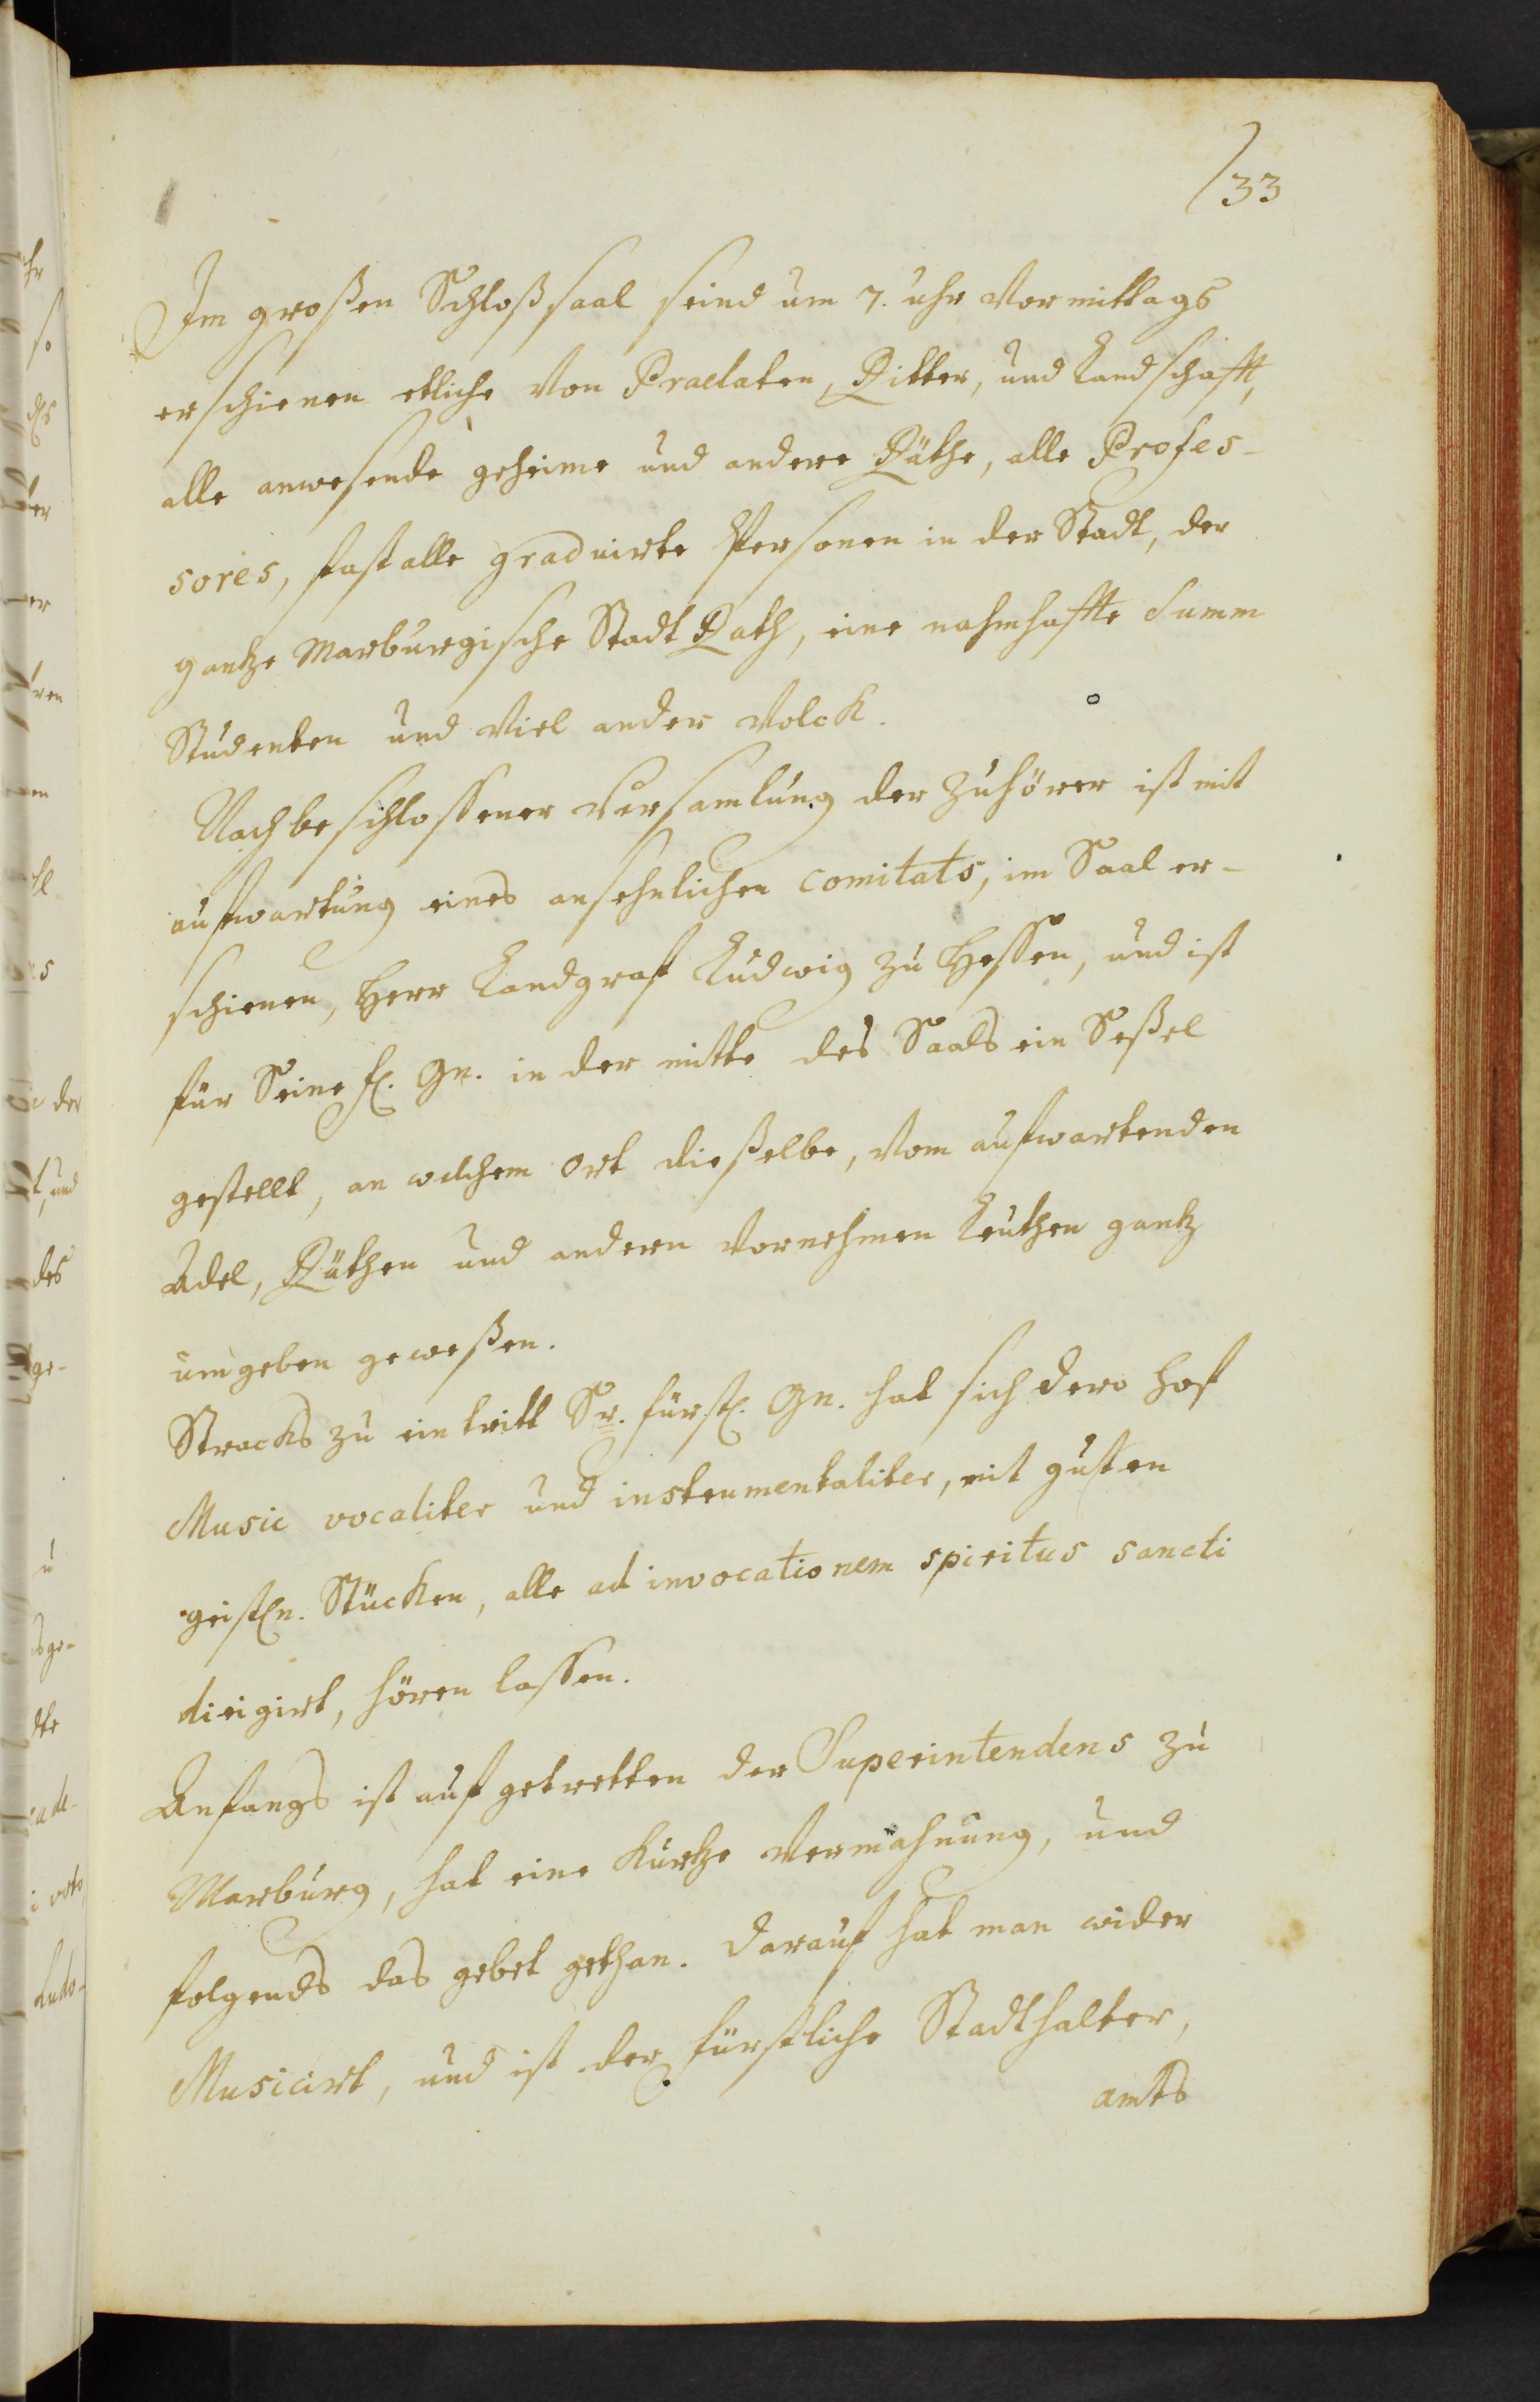 33
Im großen Schloßsaal seind um 7. uhr Vormittags
erschienen etliche von Praelaten, Ritter, und Landschafft,
alle anwesende geheime und andere Räthe, alle Profes-
sores, fast alle graduirte Personen in der Stadt, der
gantze Marburgische Stadt Rath, eine nahmhaffte Summ
Studenten und viel ander Volck.
Nach beschlossener Versamlung der Zuhörer ist mit
aufwartung eines ansehnlichen comitats, im Saal er-
schienen, Herr Landgraf Ludwig zu Hessen, und ist
für Seine fl. Gn. in der mitte des Saals ein Seßel
gestellt, an welchem Ort dieselbe, vom aufwartenden
Adel, Räthen und andern vornehmen Leuthen gantz
umgeben geweßen.
Stracks zu eintritt Sr. fürstl. Gn. hat sich dero Hof
Music vocaliter und instrumentaliter, mit guten
geistln. Stücken, alle ad invocationem spiritus sancti
dirigirt, hören lassen.
Anfangs ist aufgetretten der Superintendens zu
Marburg, hat eine kurtze Vermahnung, und
folgends das gebet gethan. Darauf hat man wider
Musicirt, und ist der fürstliche Stadthalter,
amts